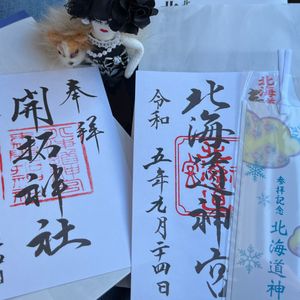 奉拝
開拓神社
北海道神宮
令和五年九月二十四日
参拝記念
北海道神